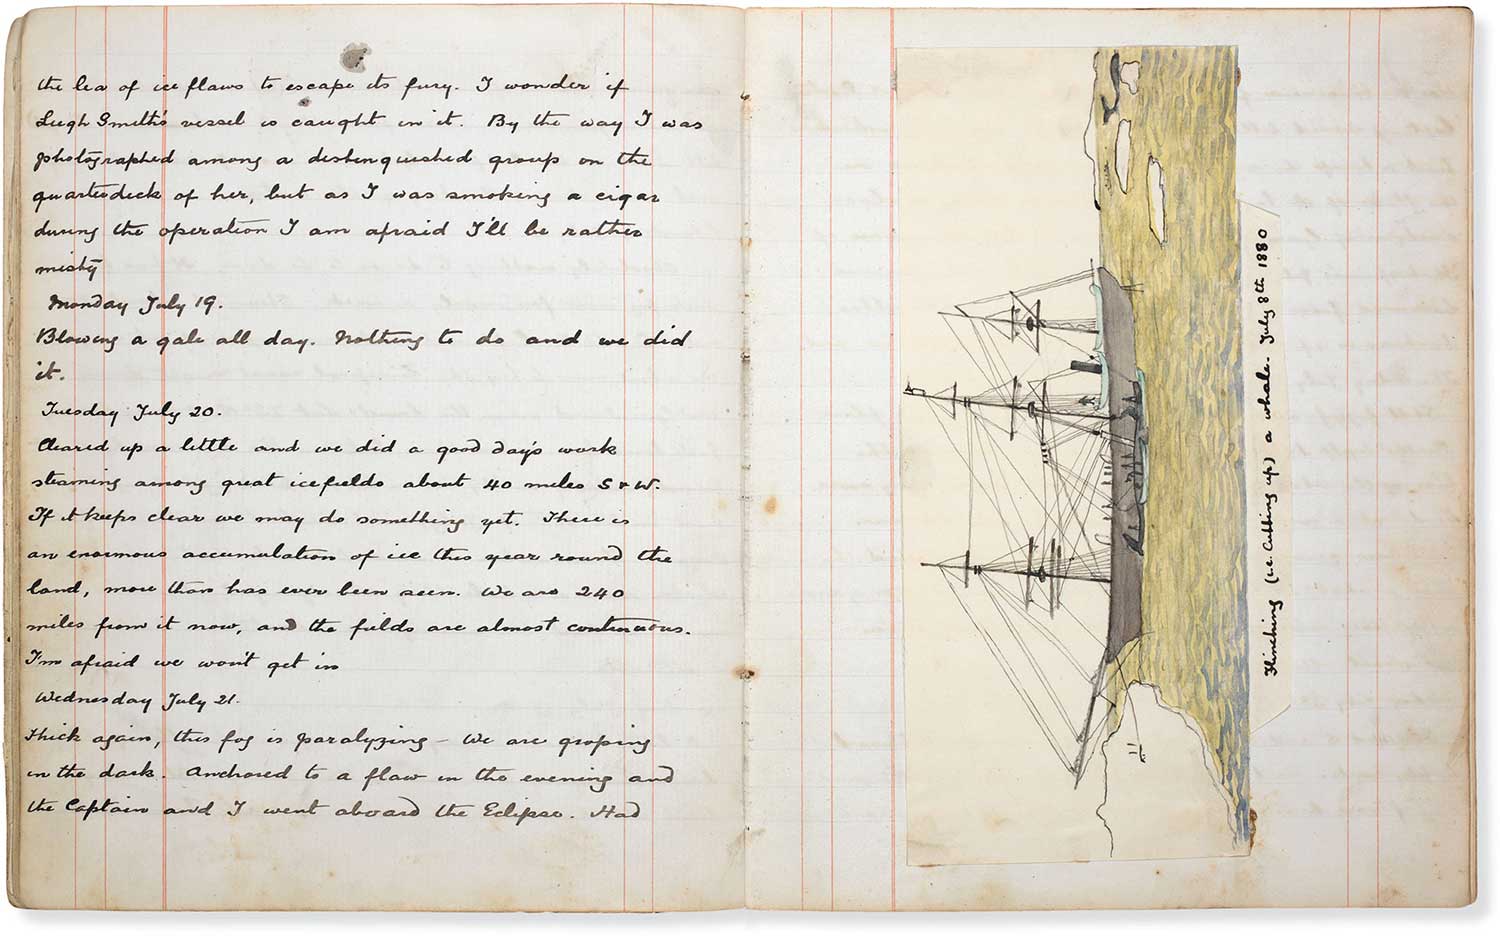 the lea of ice flaws to escape its fury. I wonder if
Leigh Smith's vessel is caught in it. By the way I was
photographed among a distinguished group on the
quarterdeck of her, but as I was smoking a cigar
during the operation I am afraid I'll be rather
misty
Monday July 19.
Blowing a gale all day. Nothing to do and we did
it.
Tuesday July 20.
Cleared up a little and we did a good day's work
steaming among great icefields about 40 miles S & W.
If it keeps clear we may do something yet. There is
an enormous accumulation of ice this year round the
land, more than has ever been seen. We are 240
miles from it now, and the fields are almost continuous.
I'm afraid we won't get in
Wednesday July 21.
Thick again, this fog is paralyzing - We are groping
in the dark. Anchored to a flaw in the evening and
the Captain and I went aboard the Eclipse. Had
Flinching (i.e. Cutting up) a whale. July 8th 1880